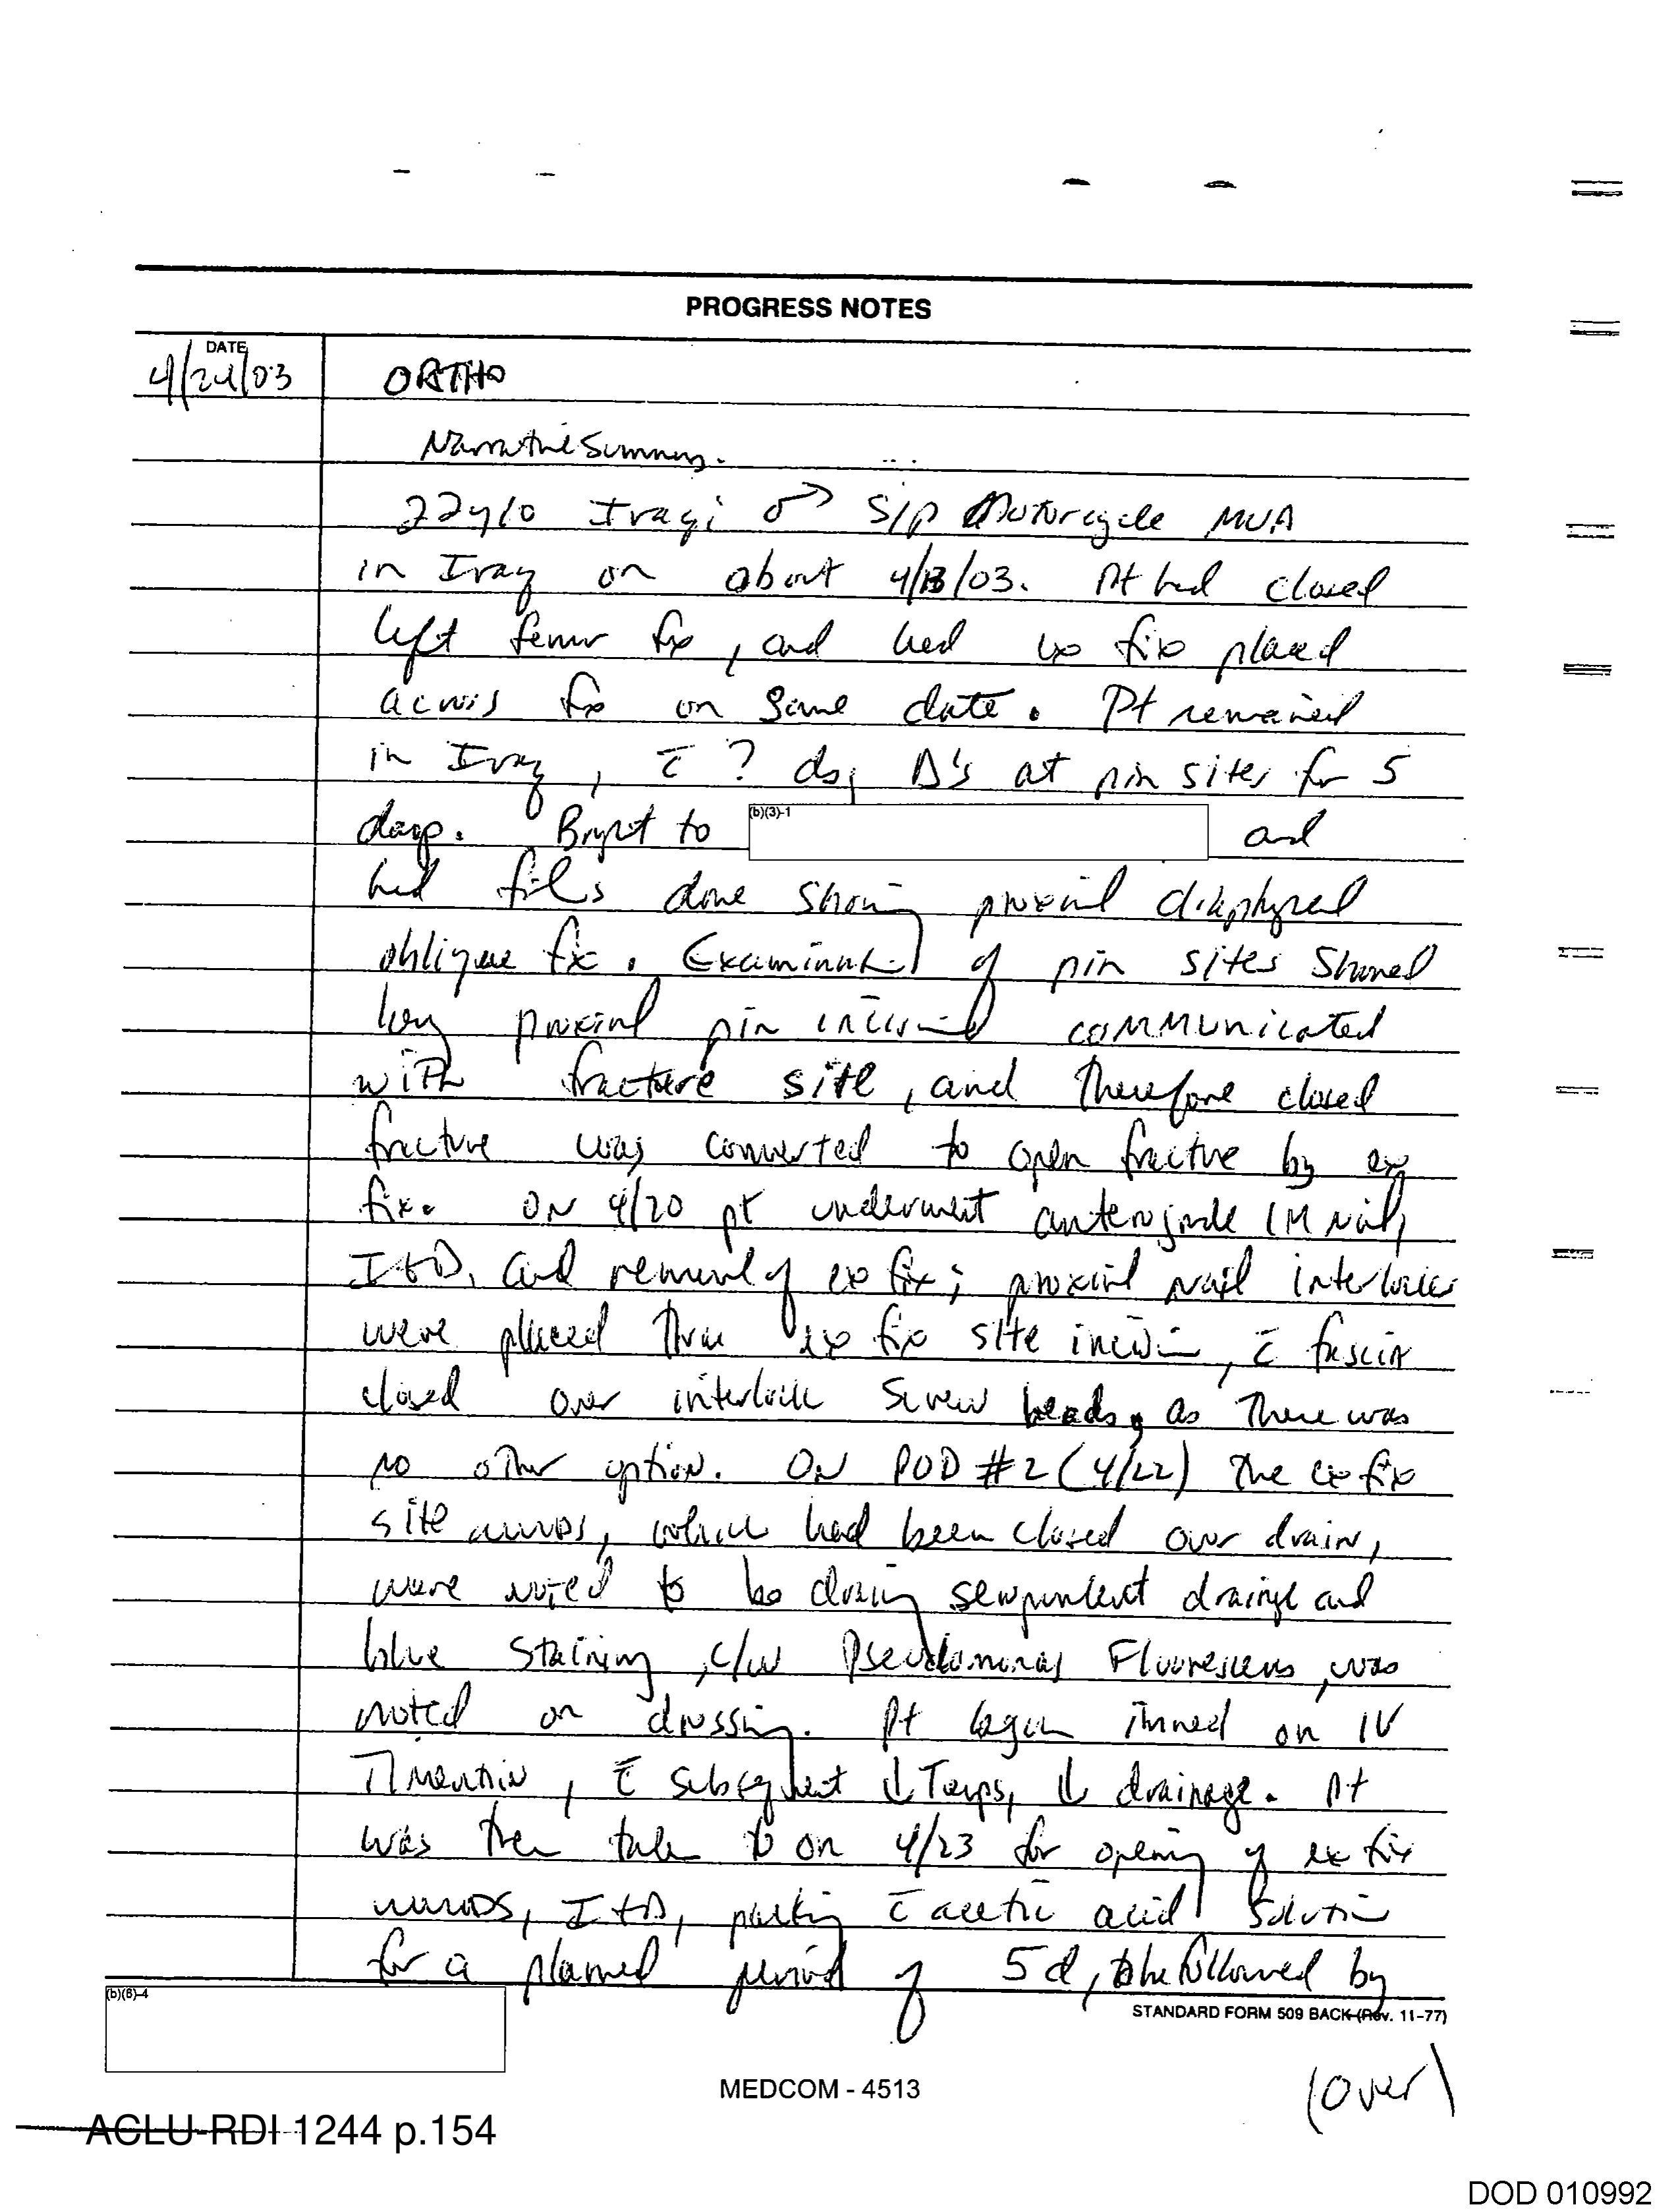 PROGRESS NOTES
DATE
4/24/03 ORTHO
Narrative Summary.
22 y/o Iraqi ♂ S/P Motorcycle MVA
in Iraq on about 4/13/03. Pt had closed
left femur fx, and had ex fix placed
across fx on same date. Pt remained
in Iraq, c̄ ? dsg Δ's at pin sites for 5
days. Brought to (b)(3)-1 and
had films done showing proximal diaphyseal
oblique fx. Examination of pin sites showed
long proximal pin incision communicated
with fracture site, and therefore closed
fracture was converted to open fracture by ex
fix. ON 4/20 pt underwent anterograde IM nail,
I+D, and removal of ex fix; proximal nail interlocks
were placed thru ex fix site incision, c̄ fascia
closed over interlock screw heads, as there was
no other option. ON POD #2 (4/22) the ex fix
site wounds, which had been closed over drain,
were noted to be draining seropurulent drainage and
blue staining, c/w Pseudomonas Fluorescens, was
noted on dressing. Pt begun on IV
Timentin, c̄ subsequent ↓ Temps, ↓ drainage. Pt
was then taken on 4/23 for opening of ex fix
wounds, I+D, packing c̄ acetic acid solution
for a planned period of 5d, to be followed by
(b)(6)-4
STANDARD FORM 509 BACK (Rev. 11-77)
(over)
MEDCOM - 4513
ACLU-RDI 1244 p.154
DOD 010992